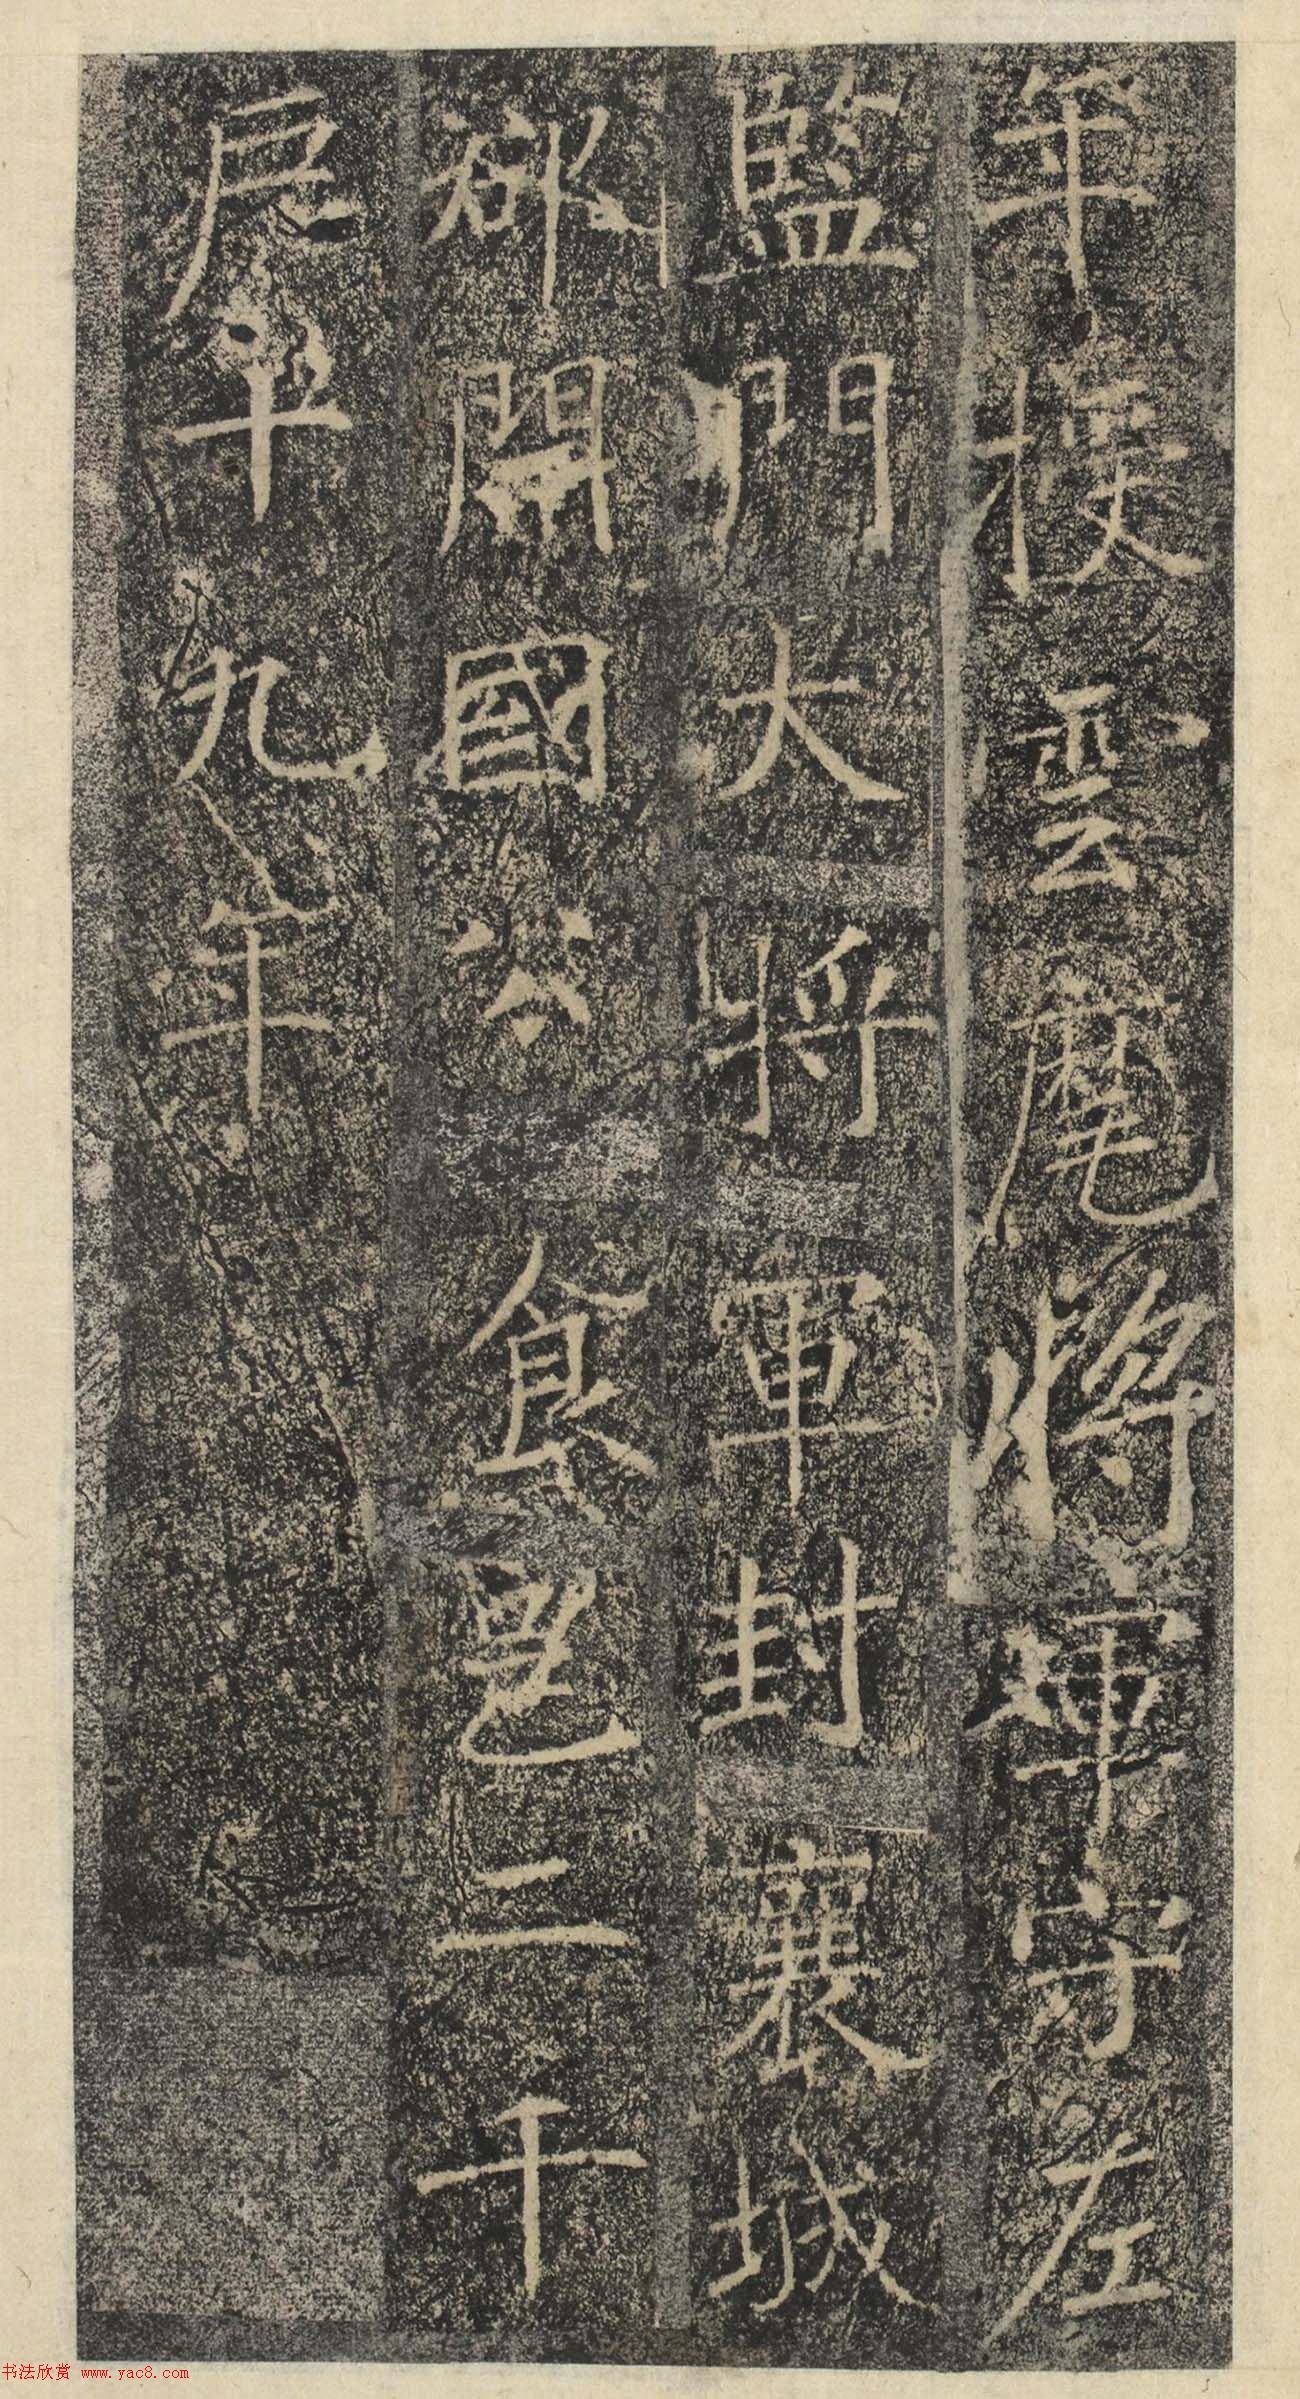 年授雲麾將軍守左
監門大將軍封襄城
郡開國公食邑二千
戶卒九年
书法欣赏 www.yac8.com